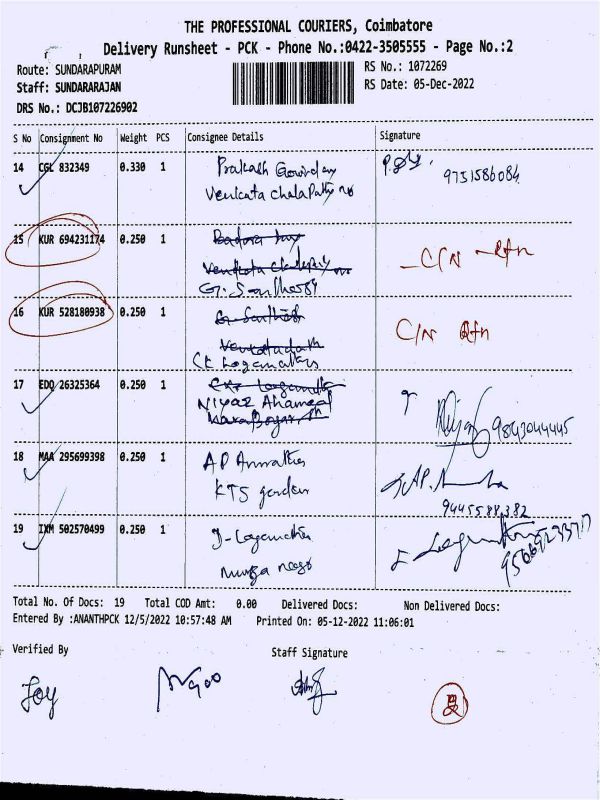 THE PROFESSIONAL COURIERS, Coimbatore
Delivery Runsheet - PCK - Phone No.:0422-3505555 - Page No.:2
Route: SUNDARAPURAM
RS No.: 1072269
Staff: SUNDARARAJAN
RS Date: 05-Dec-2022
DRS No.: DCJB107226902
S No Consignment No Weight PCS Consignee Details Signature
14 CGL 832349 0.330 1 Prakash
Venkata chalapathy
9751586084
15 KUR 694231174 0.250 1
G. Santhosh
C/N Rtn
16 KUR 528180938 0.250 1
C/N Rtn
17 EDQ 26325364 0.250 1
Niyaz Ahamed
9843044445
18 MAA 295699398 0.250 1 AP
KTS garden
9445588382
19 IXM 502570499 0.250 1 J-Loganathan
Total No. Of Docs: 19 Total COD Amt: 0.00 Delivered Docs: Non Delivered Docs:
Entered By :ANANTHPCK 12/5/2022 10:57:48 AM Printed On: 05-12-2022 11:06:01
Verified By Staff Signature
Joy